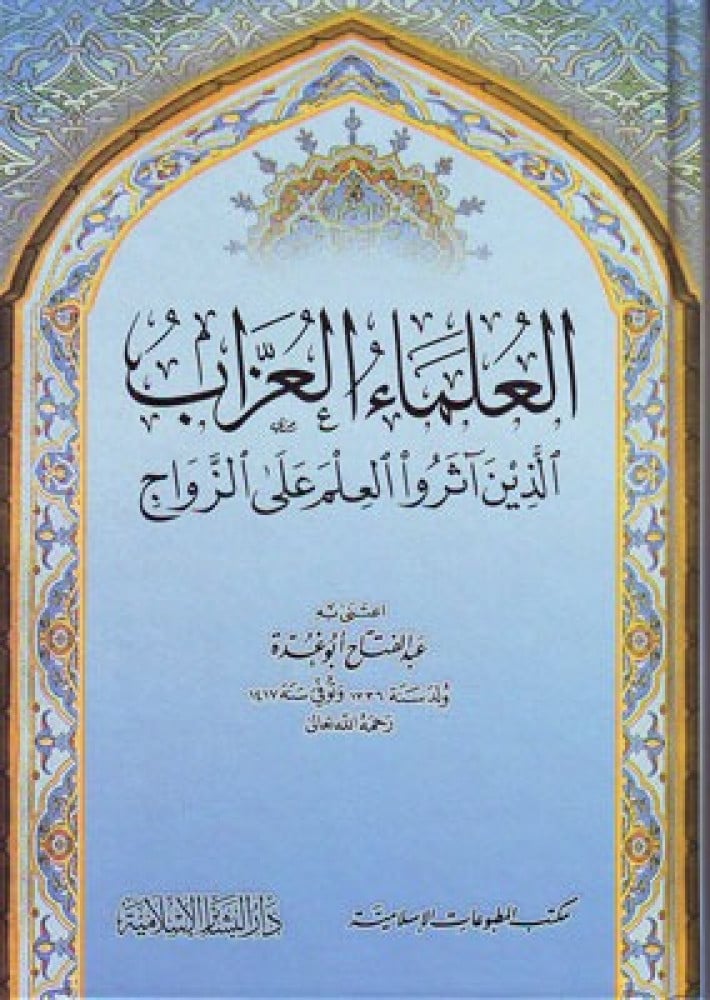 العُلَمَاءُ العُزَّابُ
الَّذِينَ آثَرُوا العِلْمَ عَلَى الزَّوَاجِ
اعتنى به
عبد الفتاح أبو غُدّة
وُلد سَنَة ١٣٣٦ وتُوفّي سَنة ١٤١٧
رحمه الله تعالى
مكتب المطبوعات الإسلامية
دار البشائر الإسلامية